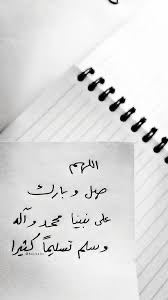 اللهم
صل و بارك
على نبينا محمد وآله
وسلم تسليماً كثيرا